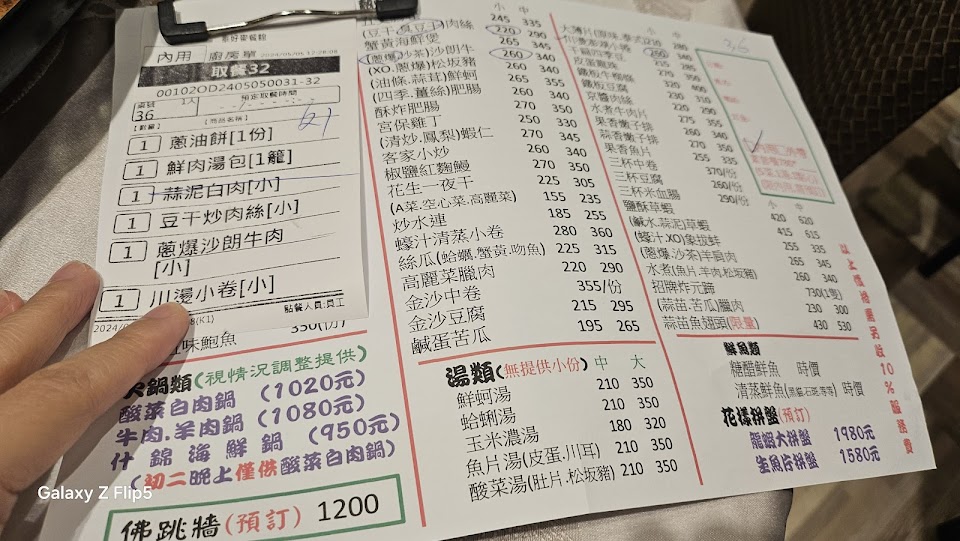 內用 廚房單
取餐32
00102OD2405050031-32
桌號 1人 預定取餐時間
36
【數量】 【商品名稱】
1 蔥油餅[1份]
1 鮮肉湯包[1籠]
1 蒜泥白肉[小]
1 豆干炒肉絲[小]
1 蔥爆沙朗牛肉
[小]
1 川燙小卷[小]
點餐人員:員工
小 中
245 335
(豆干,臭豆干)肉絲 220 290
蟹黃海鮮煲 265 345
(蔥爆,沙茶)沙朗牛 260 340
(XO.蔥爆)松坂豬 260 340
(油條.蒜茸)鮮蚵 265 355
(四季.薑茸)肥腸 260 340
酥炸肥腸 270 350
宮保雞丁 250 330
(清炒.鳳梨)蝦仁 270 345
客家小炒 260 340
椒鹽紅麴鰻 270 350
花生一夜干 225 305
(A菜.空心菜.高麗菜) 155 235
炒水連 185 255
蠔汁清蒸小卷 280 360
絲瓜(蛤蠣.蟹黃.吻魚) 225 315
高麗菜臘肉 220 290
金沙中卷 355/份
金沙豆腐 215 295
鹹蛋苦瓜 195 265
湯類(無提供小份) 中 大
鮮蚵湯 210 350
蛤蜊湯 210 350
玉米濃湯 180 320
魚片湯(皮蛋.川耳) 210 350
酸菜湯(肚片.松坂豬) 210 350
京醬肉絲
水煮牛肉片
果香嫩子排
蒜香嫩子排
果香魚片 255 335
三杯中卷 370/份
三杯豆腐 260/份
三杯米血腸 290/份
小 中
鹽酥草蝦 420 620
(鹹水.蒜泥)草蝦 415 615
(蠔汁.XO)象拔蚌 255 335
(蔥爆.沙茶)羊肩肉 265 345
水煮(魚片.羊肉.松坂豬) 260 340
招牌炸元蹄 730(1隻)
(蒜苗.苦瓜)臘肉 230 300
蒜苗魚翅頭(限量) 430 530
鮮魚類
糖醋鮮魚 時價
清蒸鮮魚 時價
花樣拼盤(預訂)
龍蝦大拼盤 1980元
生魚片拼盤 1580元
以上價格需另收10%服務費
味鮑魚 350(份)
火鍋類(視情況調整提供)
酸菜白肉鍋 (1020元)
牛肉.羊肉鍋 (1080元)
什錦海鮮鍋 (950元)
(初二晚上僅供酸菜白肉鍋)
佛跳牆(預訂) 1200
Galaxy Z Flip5